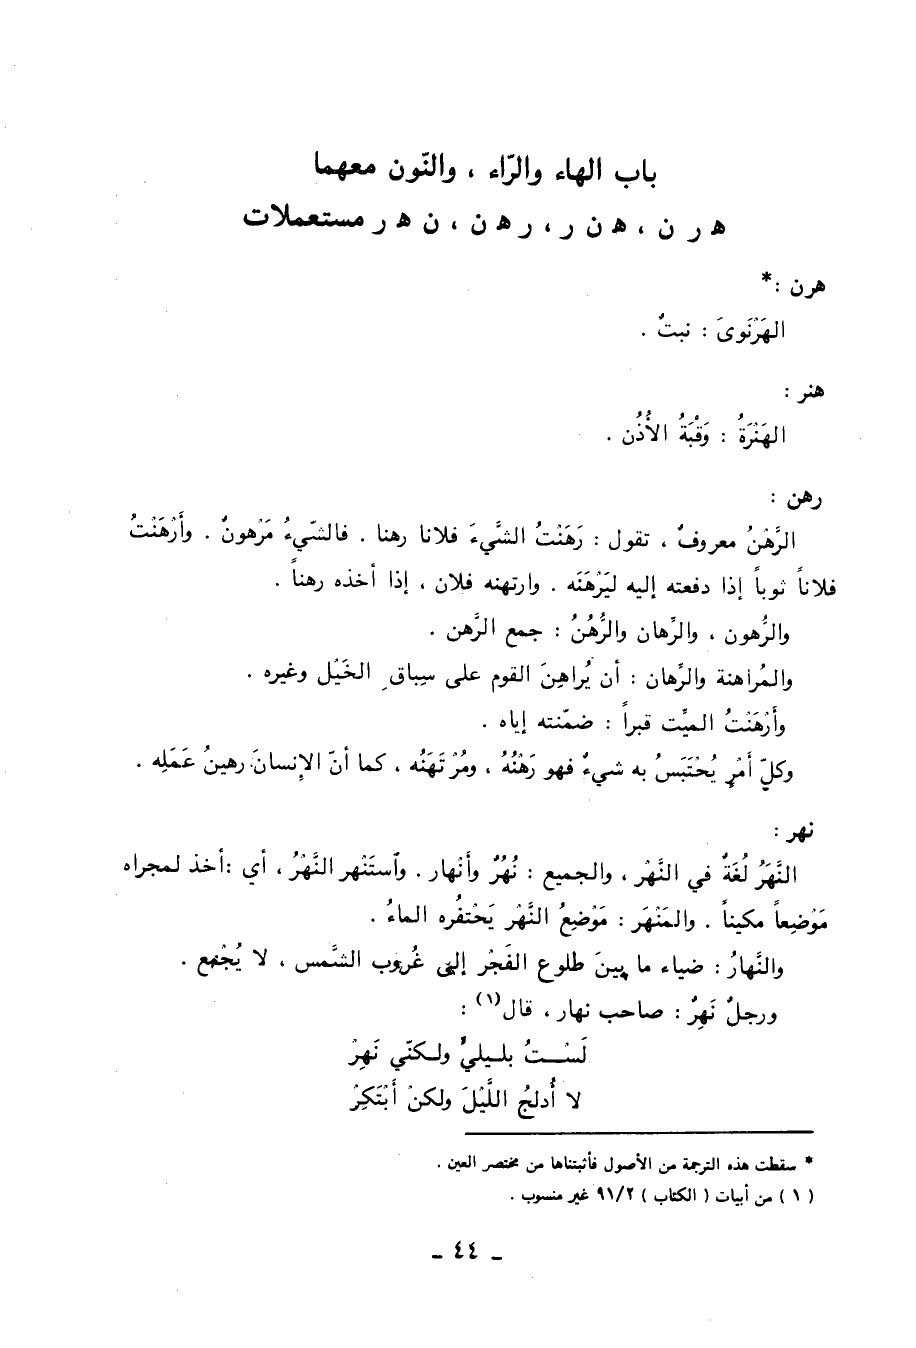 باب الهاء والرّاء ، والنّون معهما
ه ر ن ، ه ن ر ، ر ه ن ، ن ه ر مستعملات
هرن :*
الهَرْنَوىَ : نبتٌ .
هنر :
الهَنَرَةُ : وَقْبَةُ الأُذُن .
رهن :
الرَّهْنُ معروفٌ ، تقول : رَهَنْتُ الشَّيءَ فلانا رهنا . فالشّيءُ مَرْهونٌ . وأَرْهَنْتُ
فلاناً ثوباً إذا دفعته إليه ليَرْهَنَه . وارتهنه فلان ، إذا أخذه رهناً .
والرُّهون ، والرِّهان والرُّهُنُ : جمع الرَّهن .
والمُراهنة والرِّهان : أن يُراهِنَ القوم على سِباق الخَيْل وغيره .
وأَرْهَنْتُ الميِّت قبراً : ضمّنته إياه .
وكلّ أَمْرٍ يُحْتَبَسُ به شيءٌ فهو رَهْنُهُ ، ومُرْتَهَنُه ، كما أنّ الإنسانَ رهينُ عَمَلِه .
نهر :
النَّهَرُ لُغَةٌ في النَّهْر ، والجميع : نُهُرٌ وأَنْهار . وٱستَنْهر النَّهْرُ ، أي :أخذ لمجراه
مَوْضِعاً مكيناً . والمَنْهَر : مَوْضِعُ النَّهْر يَحْتفُره الماءُ .
والنَّهارُ : ضياء ما بينَ طلوع الفَجْر إلى غُروب الشَّمس ، لا يُجْمع .
ورجلٌ نَهِرٌ : صاحب نهار ، قال(١) :
لَسْـــتُ بلـيليٌّ ولـكنّي نَهِرْ
لا أُدلجُ اللَّيْلَ ولكنْ أَبْتَكِرْ
* سقطت هذه الترجمة من الأصول فأثبتناها من مختصر العين .
( ١ ) من أبيات ( الكتاب ) ٩١/٢ غير منسوب .
ـ ٤٤ ـ